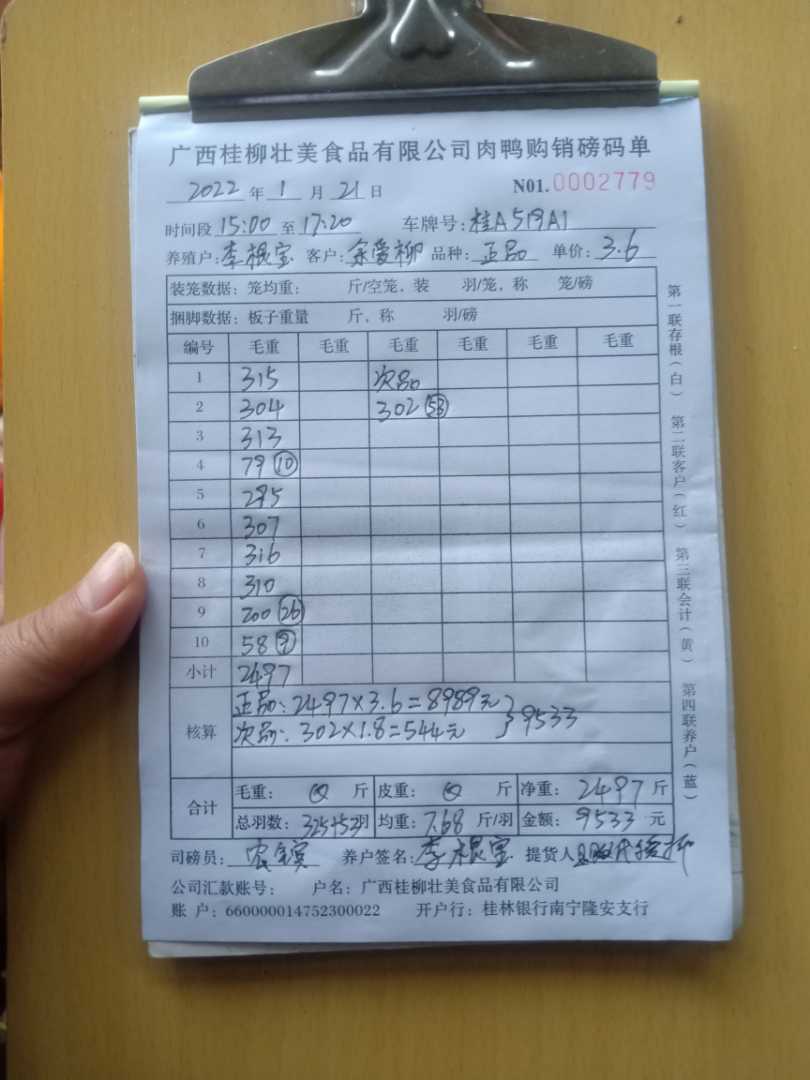 广西桂柳壮美食品有限公司肉鸭购销磅码单
2022年1月21日 N01.0002779
时间段15:00至17:20 车牌号:桂A519A1
养殖户:李根宝 客户:余爱柳 品种:正品 单价:3.6
装笼数据:笼均重: 斤/空笼,装 羽/笼,称 笼/磅
捆脚数据:板子重量 斤,称 羽/磅
编号 毛重 毛重 毛重 毛重 毛重 毛重
1 315 次品
2 304 302 53
3 313
4 79 10
5 295
6 307
7 316
8 310
9 200 26
10 58 7
小计 2497
核算 正品:2497×3.6=8989元 }9533
次品:302×1.8=544元
合计 毛重: 斤 皮重: 斤 净重:2497斤
总羽数:325+53羽 均重:7.68斤/羽 金额:9533元
司磅员: 养户签名:李根宝 提货人
公司汇款账号: 户名:广西桂柳壮美食品有限公司
账 户:660000014752300022 开户行:桂林银行南宁隆安支行
第一联存根(白) 第二联客户(红) 第三联会计(黄) 第四联养户(蓝)